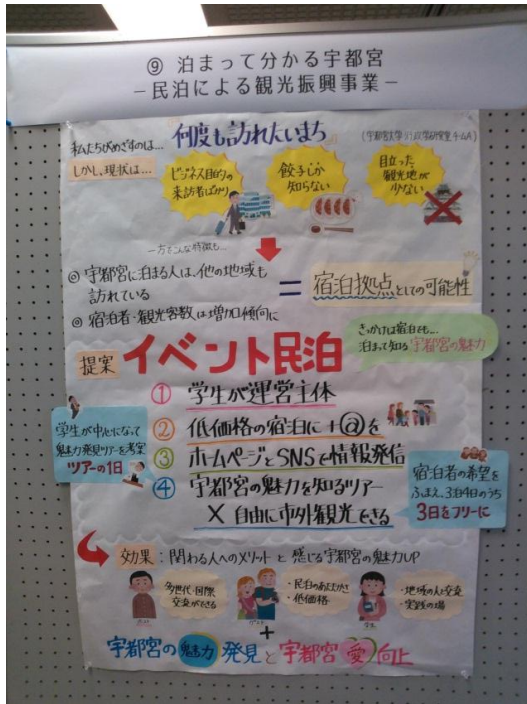 ⑨ 泊まって分かる宇都宮
－民泊による観光振興事業－
私たちがめざすのは… 何度も訪れたいまち
(宇都宮大学 行政学研究室チームA)
しかし、現状は…
ビジネス目的の
来訪者ばかり
餃子しか
知らない
目立った
観光地が
少ない
一方でこんな特徴も…
◎ 宇都宮に泊まる人は、他の地域も
訪れている
◎ 宿泊者・観光客数は増加傾向に
= 宿泊拠点としての可能性
きっかけは宿泊でも…
泊まって知る宇都宮の魅力
提案 イベント民泊
① 学生が運営主体
② 低価格の宿泊に+@を
③ ホームページとSNSで情報発信
④ 宇都宮の魅力を知るツアー
× 自由に市外観光できる
学生が中心になって
魅力発見ツアーを考案
ツアーの1日
宿泊者の希望を
ふまえ、3泊4日のうち
3日をフリーに
効果:関わる人へのメリットと感じる宇都宮の魅力UP
多世代・国際
交流ができる
ホスト
・民泊のあたたかさ
・低価格
ゲスト
・地域の人と交流
・実践の場
学生
+
宇都宮の魅力発見と宇都宮愛向上